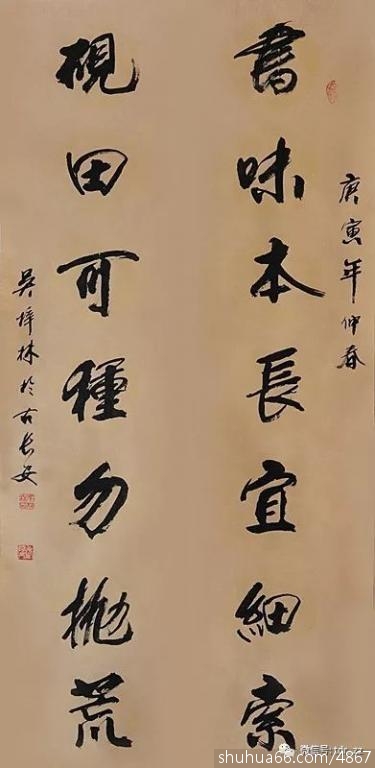 庚寅年仲春
書味本長宜細索
硯田可種勿拋荒
吴梓林於古長安
shuhua66.com/4867